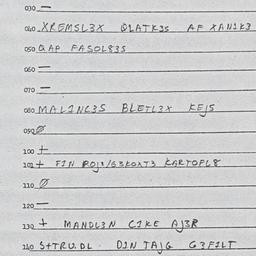 030 —
040 XREMSL3X QLATK3S AF XAN1K3
050 QAP FASOL83S
060 —
070 —
080 MALINC3S BLETL3X KEJS
090 Ø
100 +
101 + FIN KARTOFL8
110 Ø
120 —
130 + MANDL3N CIKE AJ3R
140 DIN TAJG G3FILT